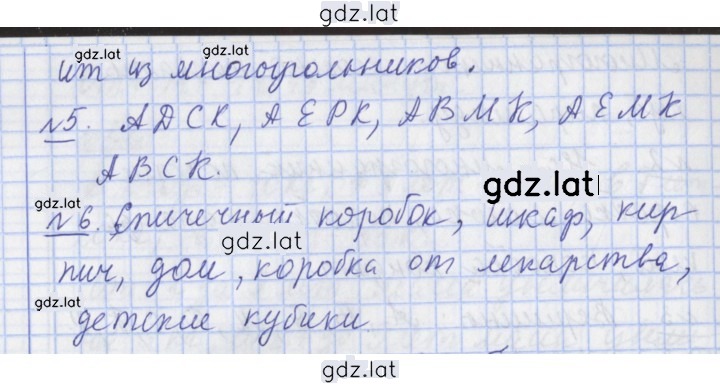 gdz.lat
gdz.lat gdz.lat
ит из многоугольников.
№5. АДСК, АЕРК, АВМК, АЕМК
АВСК.
gdz.lat
gdz.lat
№6. Спичечный коробок, шкаф, кир-
gdz.lat
пич, дом, коробка от лекарства,
gdz.lat
gdz.lat
детские кубики
gdz.lat